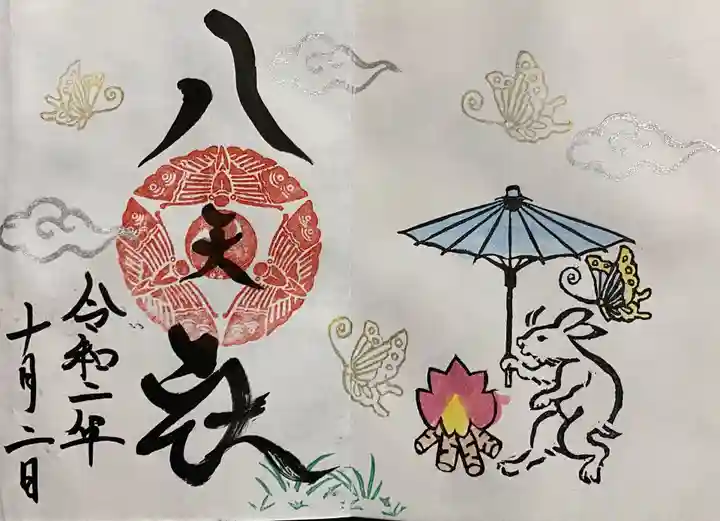 八天宮
令和二年
十月二日